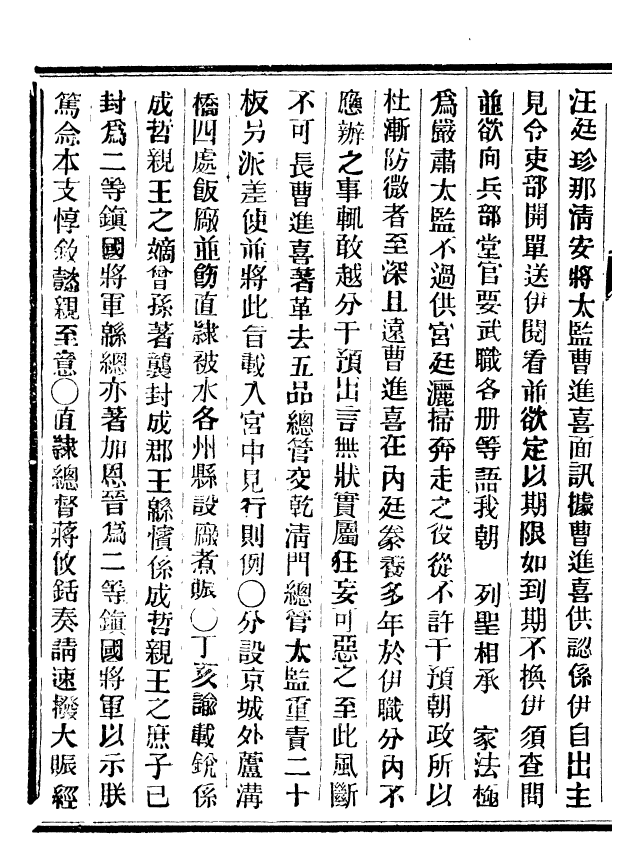 汪廷珍那淸安將太監曹進喜面訊據曹進喜供認係伊自出主
見令吏部開單送伊閱看並欲定以期限如到期不換伊須查問
並欲向兵部堂官要武職各册等語我朝　列聖相承　家法極
爲嚴肅太監不過供宮廷灑掃奔走之役從不許干預朝政所以
杜漸防微者至深且遠曹進喜在內廷豢養多年於伊職分內不
應辦之事輒敢越分干預出言無狀實屬狂妄可惡之至此風斷
不可長曹進喜著革去五品總管交乾淸門總管太監重責二十
板另派差使並將此旨載入宮中見行則例○分設京城外蘆溝
橋四處飯廠並飭直隸被水各州縣設廠煮賑○丁亥諭載銳係
成哲親王之嫡曾孫著襲封成郡王緜懭係成哲親王之庶子已
封爲二等鎭國將軍緜總亦著加恩晉爲二等鎭國將軍以示朕
篤念本支惇敘懿親至意○直隸總督蔣攸銛奏請速撥大賑經